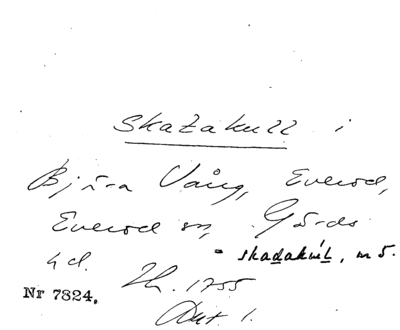 Skatakull i
Bjära Vång, Everöd,
Everöd sn, Gärds
hd. - skadakul, m 5.
Nr 7824. Lh. 1755
Akt 1.